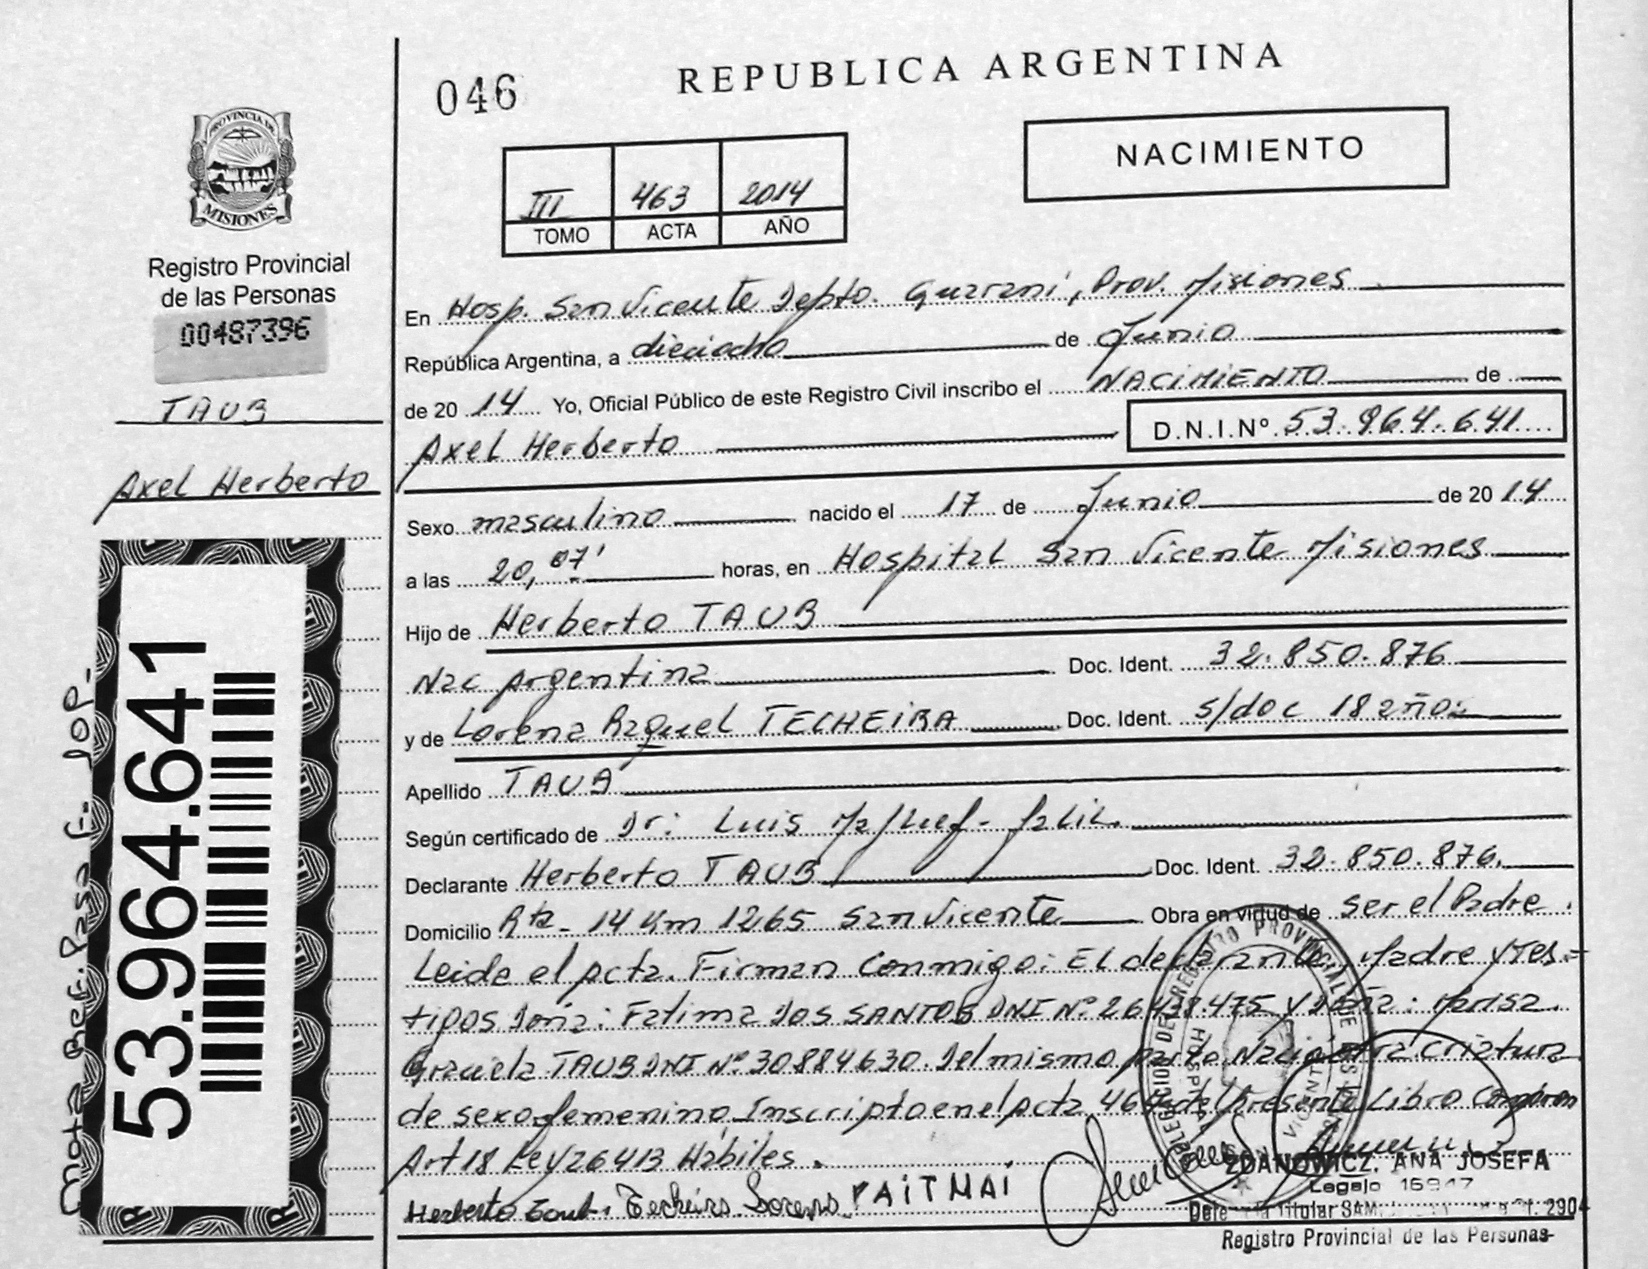 046
REPUBLICA ARGENTINA
NACIMIENTO
III 463 2014
TOMO ACTA AÑO
PROVINCIA DE
MISIONES
Registro Provincial
de las Personas
00487396
TAUB
Axel Herberto
53.964.641
En Hosp. San Vicente Depto. Guarani, Prov. Misiones
República Argentina, a dieciocho de Junio
de 2014 Yo, Oficial Público de este Registro Civil inscribo el NACIMIENTO de
Axel Herberto D.N.I.Nº 53.964.641
Sexo masculino nacido el 17 de Junio de 2014
a las 20,07' horas, en Hospital San Vicente Misiones
Hijo de Herberto TAUB
Nac Argentina Doc. Ident. 32.850.876
y de Lorena Raquel TECHEIRA Doc. Ident. s/doc 18 años
Apellido TAUB
Según certificado de Dr: Luis
Declarante Herberto TAUB Doc. Ident. 32.850.876.
Domicilio Rta. 14 Km 1265 San Vicente Obra en virtud de ser el Padre.
Leida el Acta. Firman Conmigo: El declarante, Madre y Tes=
tigos Doña: Fatima DOS SANTOS DNI Nº 26.418.475 y Doña: Marisa
Graciela TAUB DNI Nº 30884630. Del mismo parto Nacio otra criatura
de sexo femenino Inscripto en el Acta 464 del Presente Libro
Art 18 Ley 26413 Hábiles.
Herberto Taub. Techeira Lorena PAITMAI
ZDANOWICZ, ANA JOSEFA
Legajo 16947
Titular
Registro Provincial de las Personas